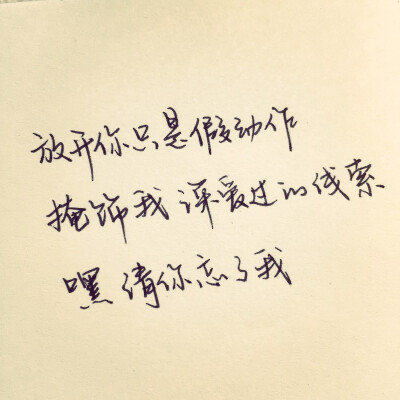 放开你只是假动作
掩饰我深爱过的线索
嘿 请你忘了我